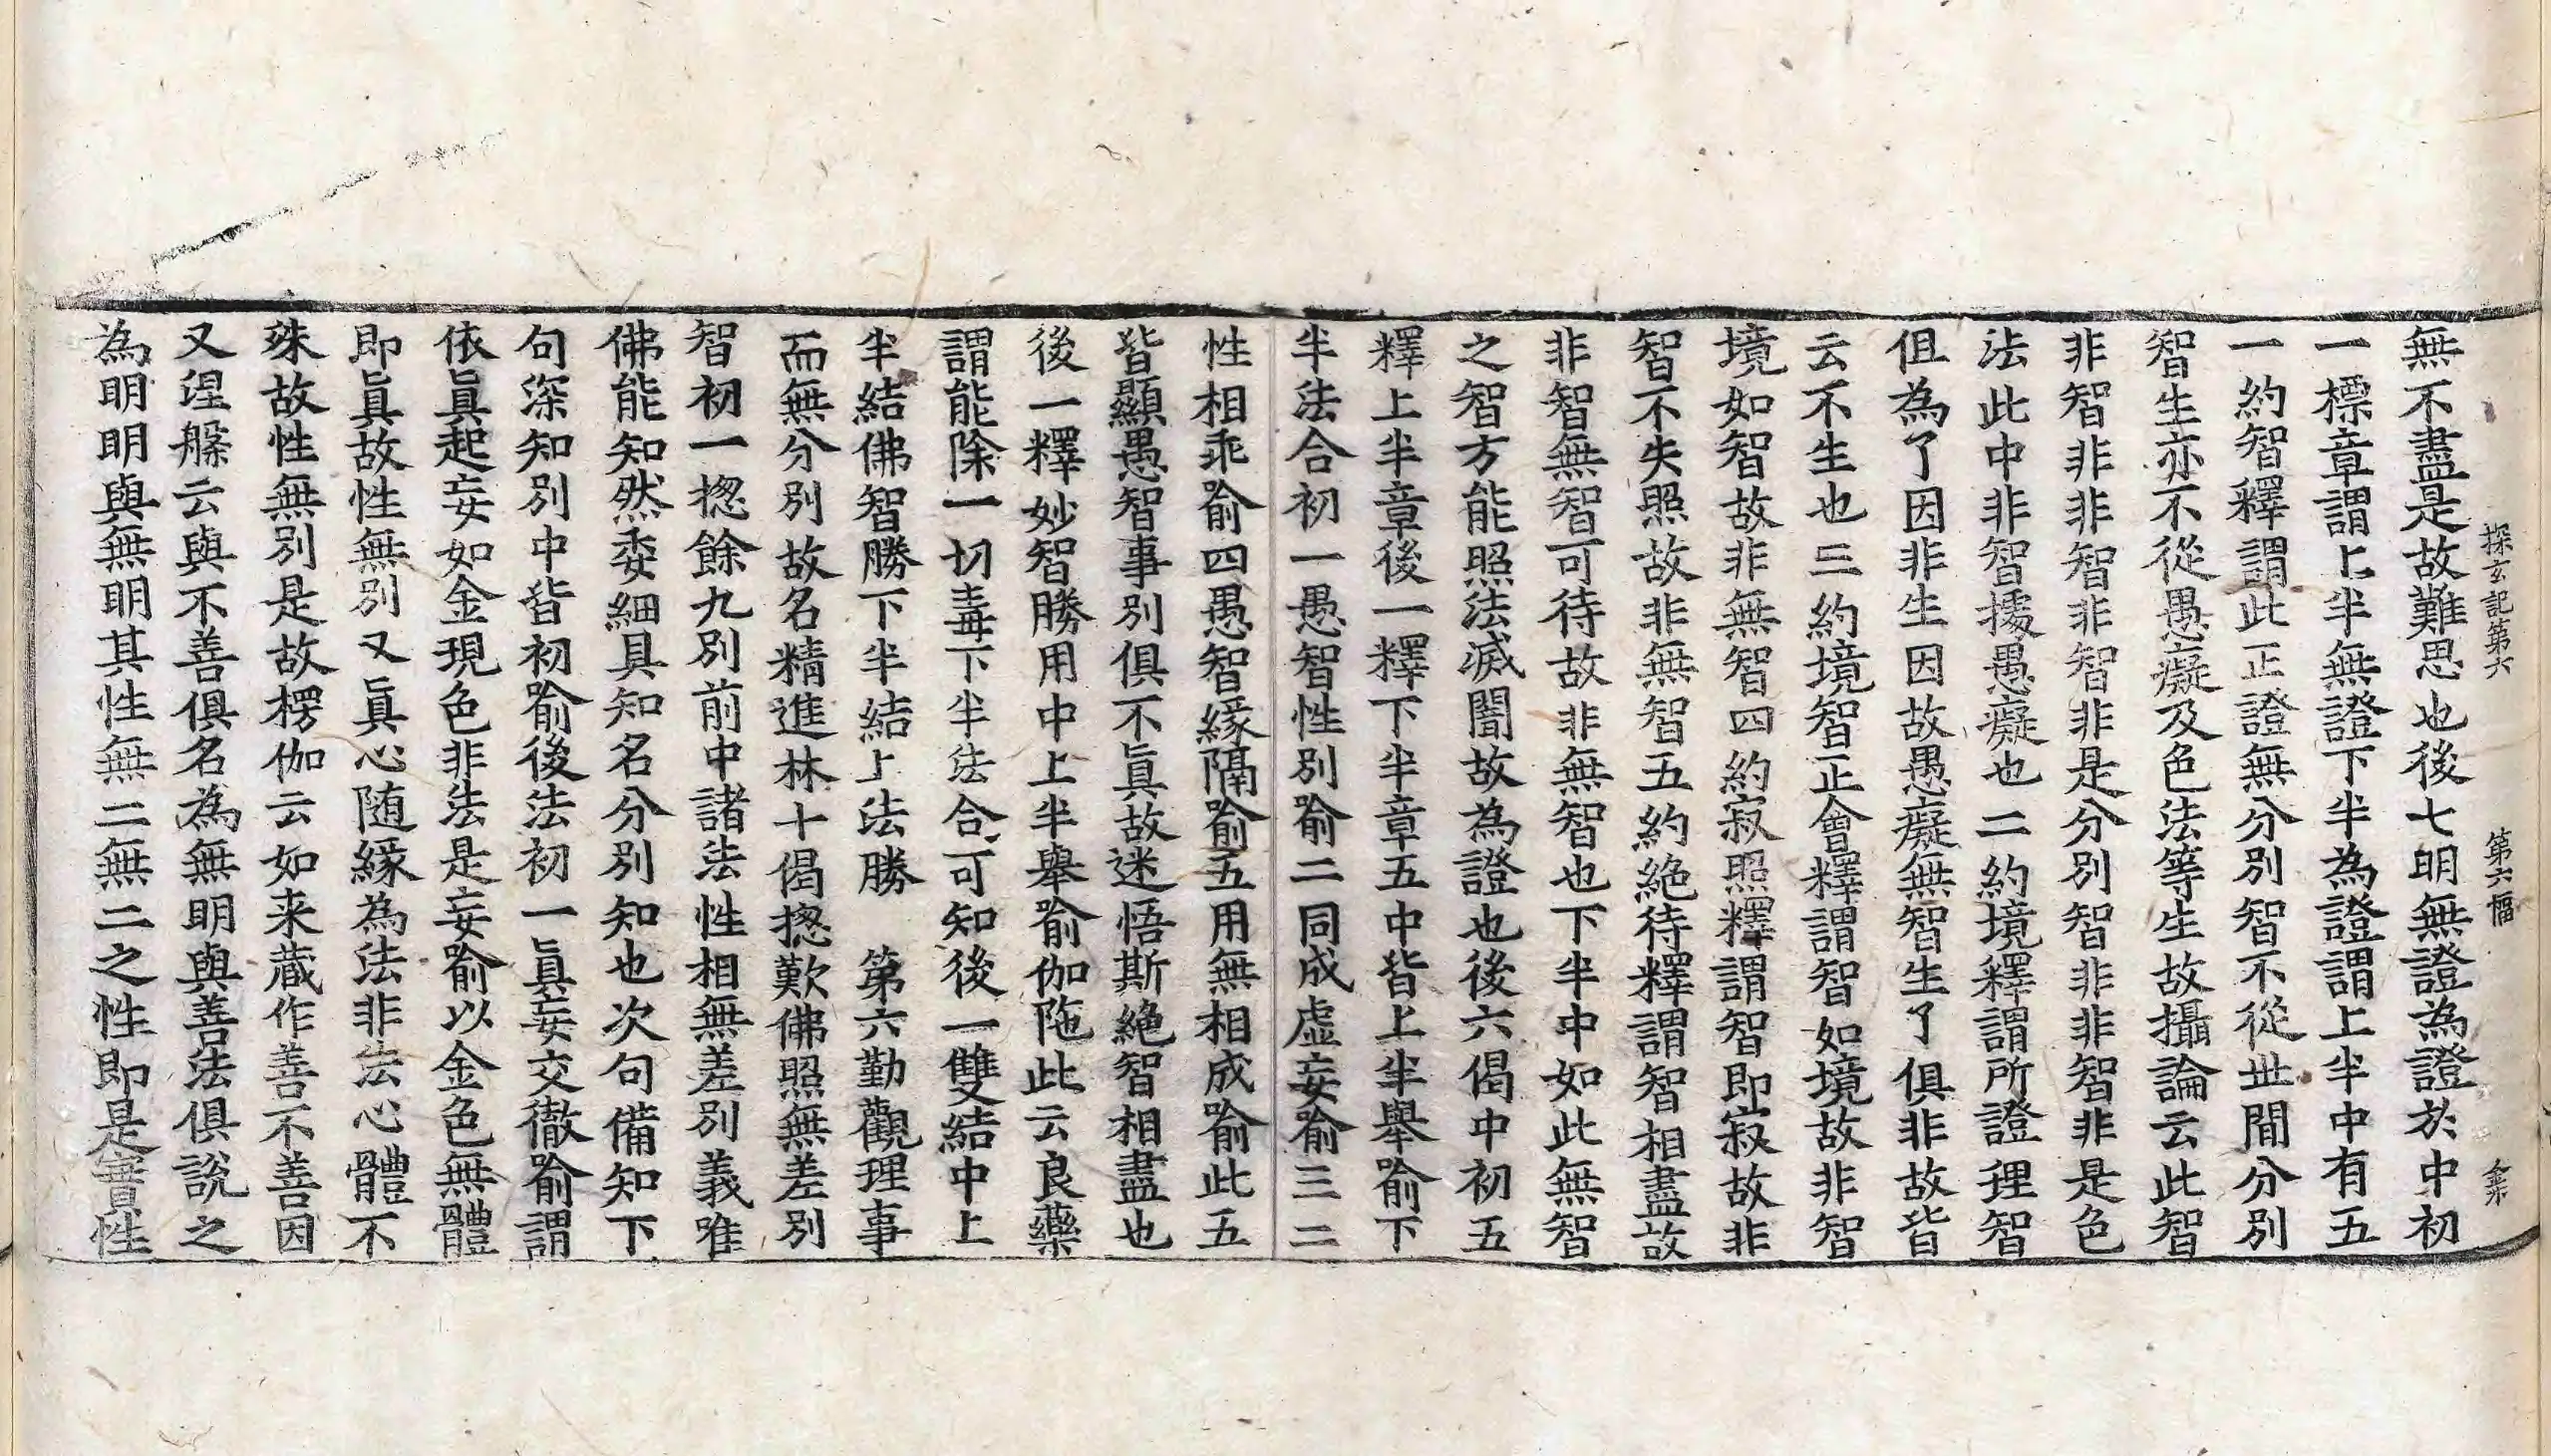 探玄記第六 第六幅
無不盡是故難思也後七明無證為證於中初
一標章謂上半無證下半為證謂上半中有五
一約智釋謂此正證無分別智不從世間分別
智生亦不從愚癡及色法等生故攝論云此智
非智非非智非非智非是分別智非非智非是色
法此中非智擾愚癡也二約境釋謂所證理智
但為了因非生因故愚癡無智生了俱非故皆
云不生也三約境智正會釋謂智如境故非智
境如智故非無智四約寂照釋謂智即寂故非
智不失照故非無智五約絶待釋謂智相盡故
非智無智可待故非無智也下半中如此無智
之智方能照法滅闇故為證也後六偈中初五
釋上半章後一釋下半章五中皆上半舉喻下
半法合初一愚智性別喻二同成虛妄喻三二
性相乖喻四愚智緣隔喻五用無相成喻此五
皆顯愚智事別俱不真故迷悟斯絶智相盡也
後一釋妙智勝用中上半舉喻伽陁此云良藥
謂能除一切毒下半法合可知後一雙結中上
半結佛智勝下半結上法勝　第六勤觀理事
而無分別故名精進林十偈揔歎佛照無差別
智初一揔餘九別前中諸法性相無差別義唯
佛能知然委細具知名分別知也次句備知下
句深知別中皆初喻後法初一眞妄交徹喻謂
依眞起妄如金現色非法是妄喻以金色無體
即眞故性無別又眞心随緣為法非法心體不
殊故性無別是故楞伽云如来蔵作善不善因
又涅槃云與不善俱名為無明與善法俱說之
為明明與無明其性無二無二之性即是實性